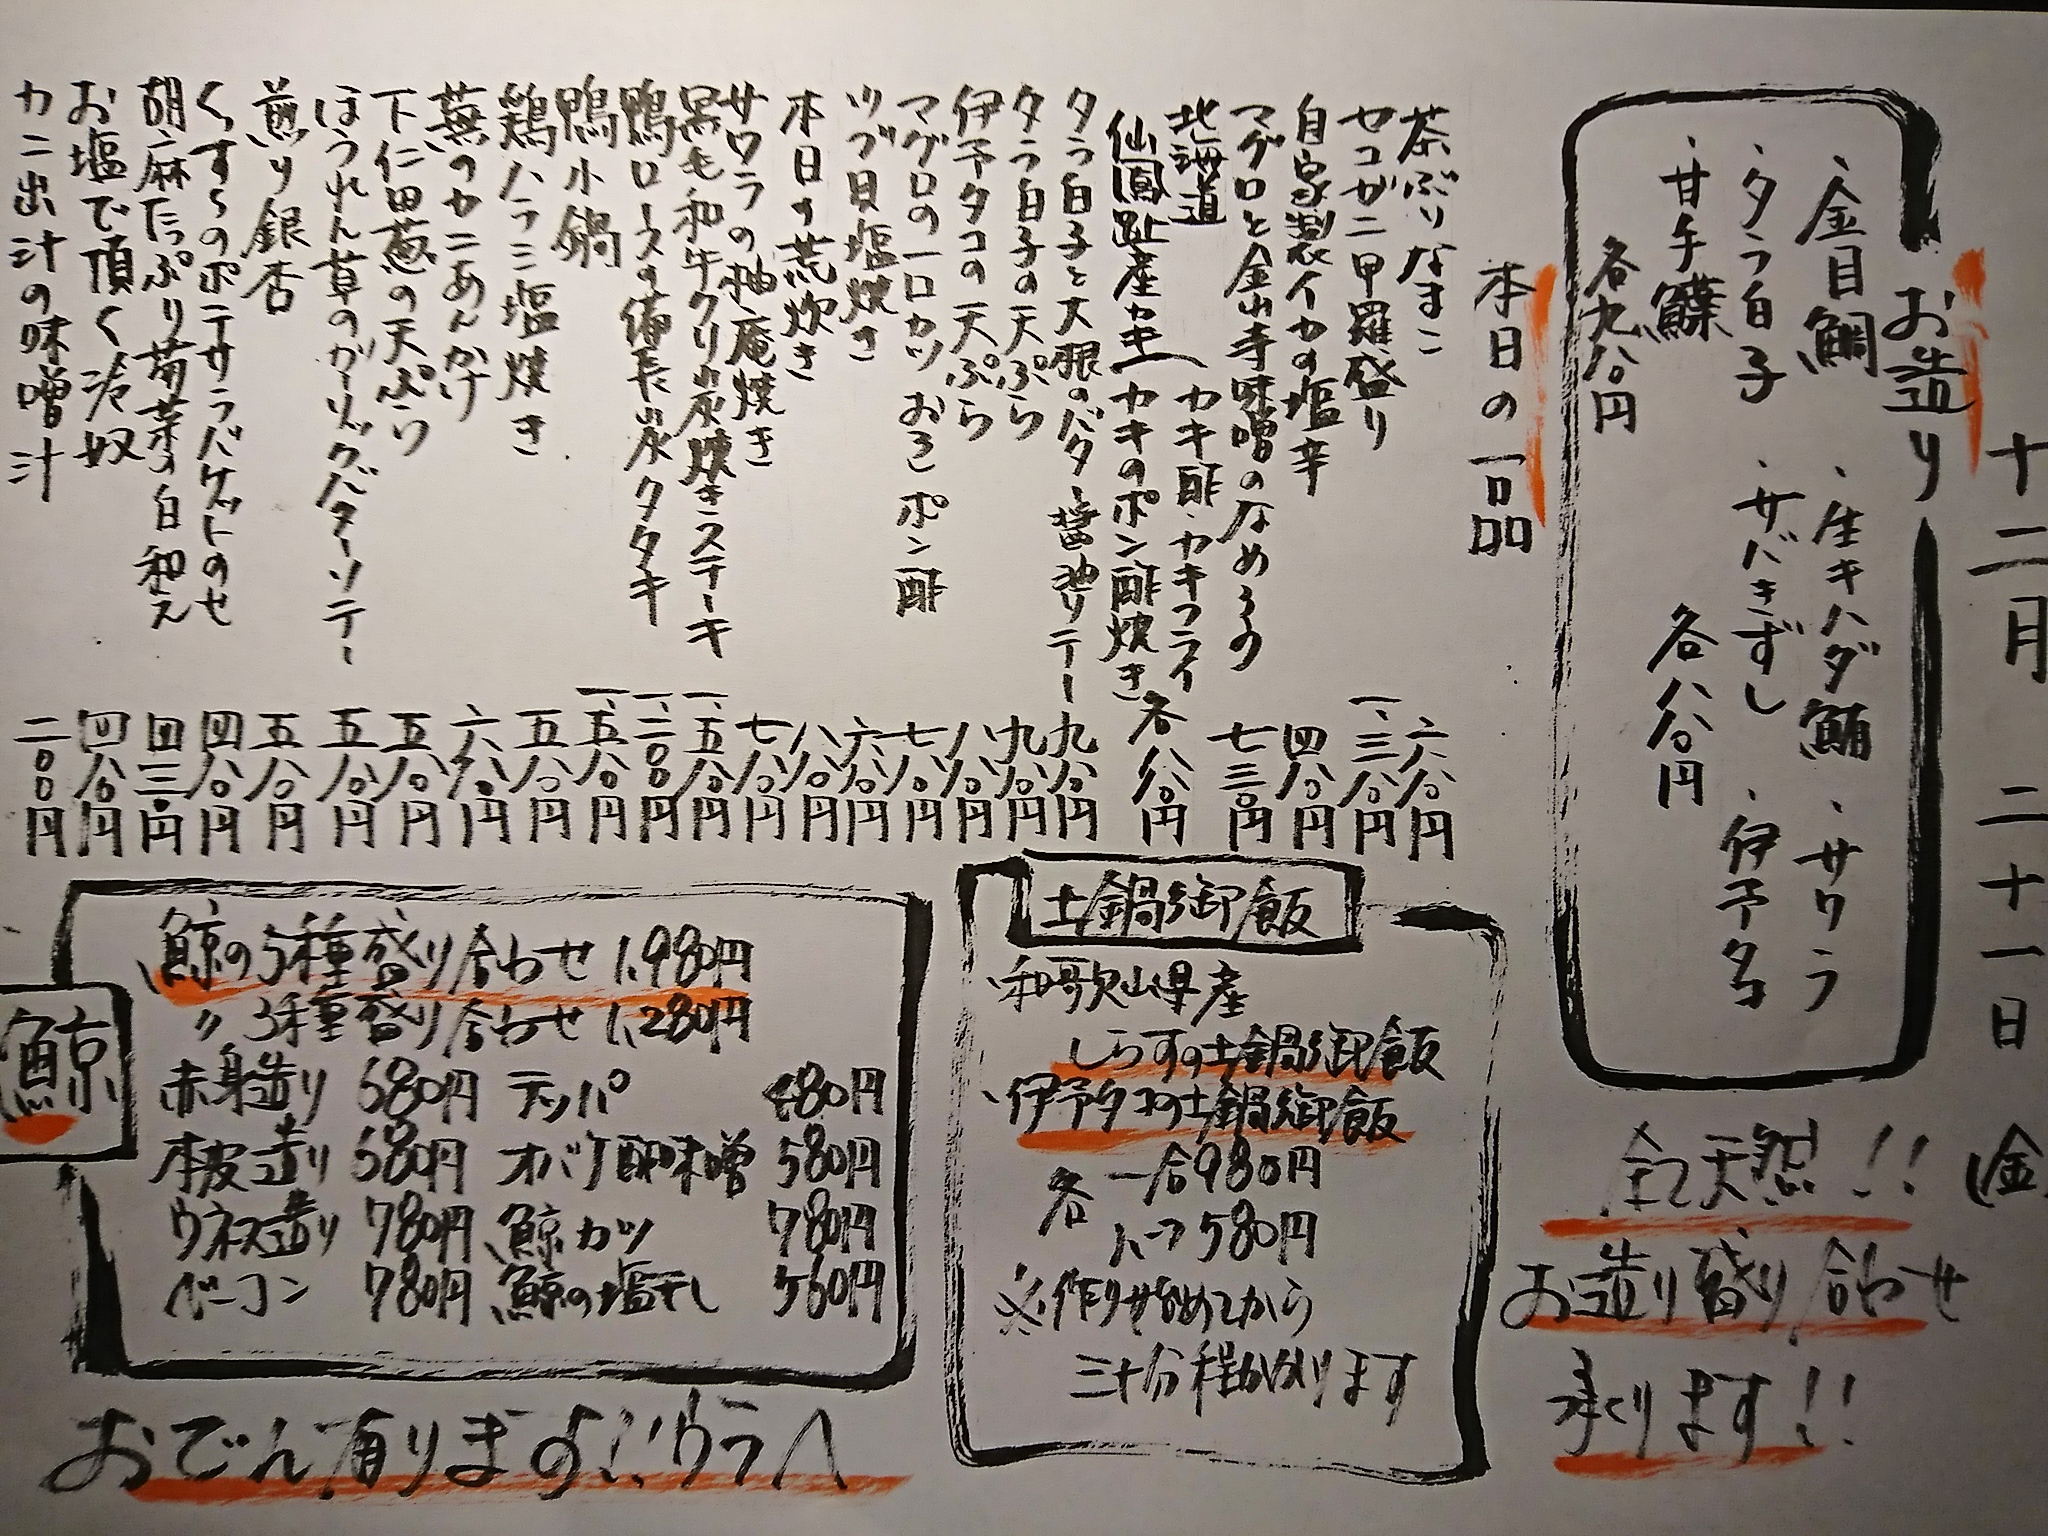 十二月二十一日(金)
お造り
・金目鯛 ・生キハダ鮪 ・サワラ
・タラ白子 ・サバきずし ・伊予タコ
・甘手鰈 各八八〇円
各九八〇円
全て天然!!
お造り盛り合わせ
承ります!!
本日の一品
茶ぶりなまこ 六八〇円
セコガニ甲羅盛り 一、三八〇円
自家製イカの塩辛 四八〇円
マグロと金山寺味噌のなめろう 七三〇円
北海道
仙鳳趾産カキ
カキ酢・カキフライ
カキのポン酢焼き 各八八〇円
タラ白子と大根のバター醤油ソテー 九八〇円
タラ白子の天ぷら 九八〇円
伊予タコの天ぷら 八八〇円
マグロの一口カツ おろしポン酢 七八〇円
ツブ貝塩焼き 六八〇円
本日の荒炊き 八八〇円
サワラの柚庵焼き 七八〇円
黒毛和牛クリ炭焼きステーキ 一、五八〇円
鴨ロースの備長炭タタキ 一、二〇〇円
鴨小鍋 一、五八〇円
鶏ハラミ塩焼き 五八〇円
蕪のカニあんかけ 六八〇円
下仁田葱の天ぷら 五八〇円
ほうれん草のガーリックバターソテー 五八〇円
煎り銀杏 五八〇円
くずしのポテサラバゲットのせ 四八〇円
胡麻たっぷり菊菜の白和え 四三〇円
お塩で頂く冷奴 四八〇円
カニ出汁の味噌汁 二〇〇円
土鍋御飯
・和歌山県産
しらすの土鍋御飯
・伊予タコの土鍋御飯
各 一合980円
ハーフ580円
※作り始めてから
三十分程かかります
鯨
鯨の5種盛り合わせ 1,980円
〃 3種盛り合わせ 1,280円
赤身造り 680円 テッパ 480円
本皮造り 680円 オバケ酢味噌 580円
ウネス造り 780円 鯨カツ 780円
ベーコン 780円 鯨の塩干し 560円
おでん有ります!!ウラへ